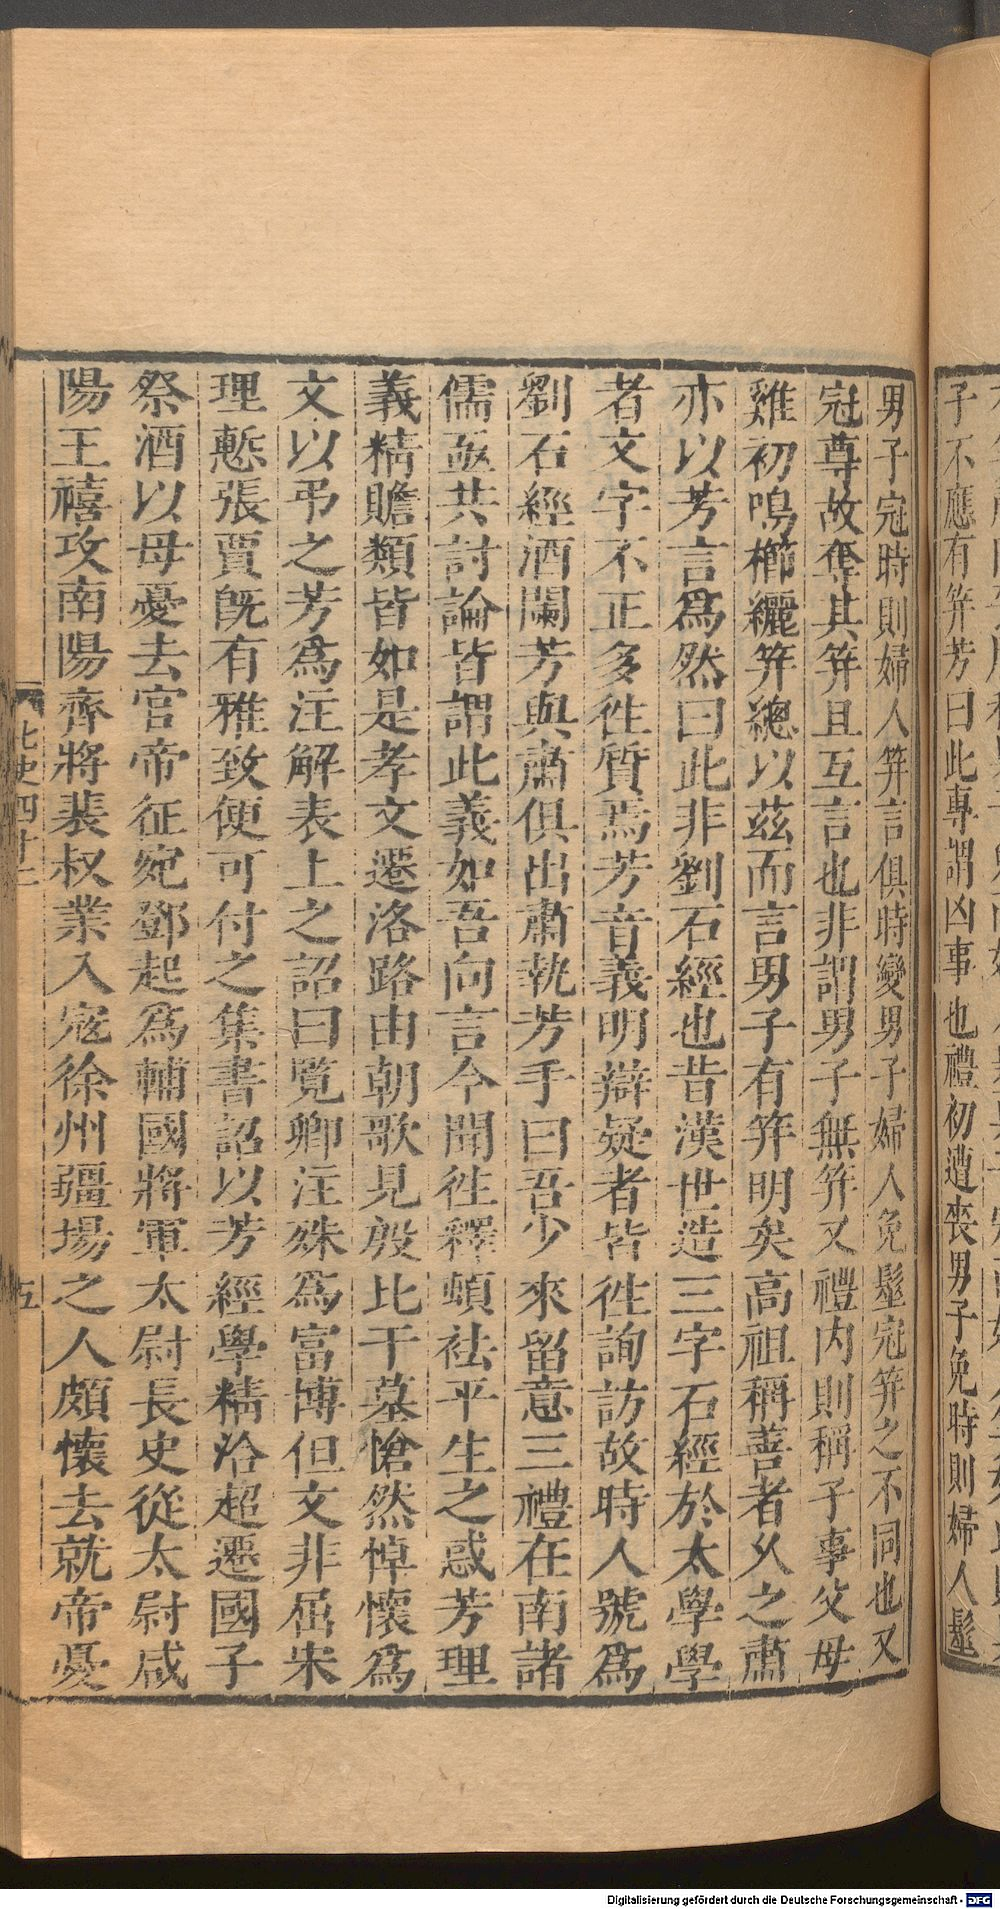 子不應有笄芳曰此專謂凶事也禮初遭喪男子免時則婦人髽
男子冠時則婦人笄言俱時變男子婦人免髽冠笄之不同也又
冠尊故奪其笄且互言也非謂男子無笄又禮內則稱子事父母
雞初鳴櫛纚笄總以茲而言男子有笄明矣高祖稱善者久之肅
亦以芳言爲然曰此非劉石經也昔漢世造三字石經於太學學
者文字不正多徃質焉芳音義明辯疑者皆徃詢訪故時人號爲
劉石經酒闌芳與肅俱出肅執芳手曰吾少來留意三禮在南諸
儒亟共討論皆謂此義如吾向言今聞徃釋頓祛平生之惑芳理
義精贍類皆如是孝文遷洛路由朝歌見殷比干墓愴然悼懷爲
文以弔之芳爲注解表上之詔曰覽卿注殊爲富博但文非屈宋
理慙張賈旣有雅致便可付之集書詔以芳經學精洽超遷國子
祭酒以母憂去官帝征宛鄧起爲輔國將軍太尉長史從太尉咸
陽王禧攻南陽齊將裴叔業入寇徐州疆場之人頗懷去就帝憂
北史四十二
五
Digitalisierung gefördert durch die Deutsche Forschungsgemeinschaft - DFG